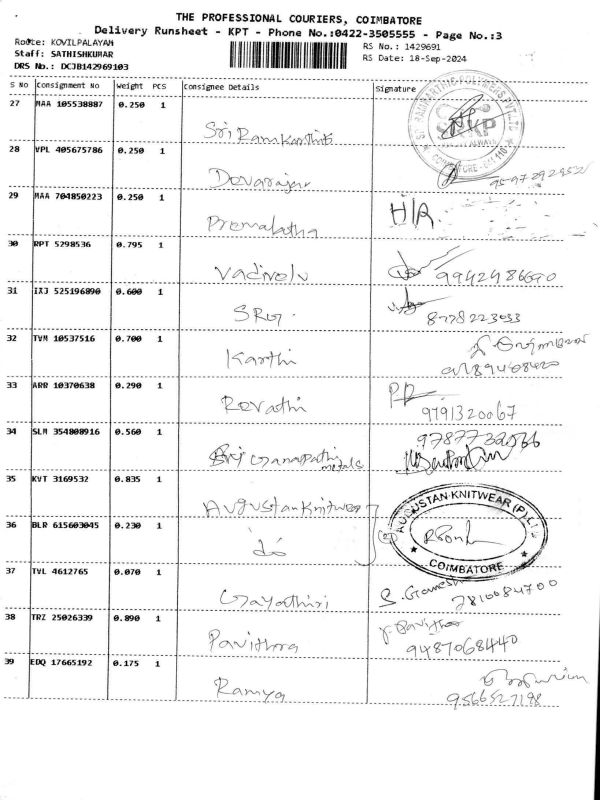 THE PROFESSIONAL COURIERS, COIMBATORE
Delivery Runsheet - KPT - Phone No.:0422-3505555 - Page No.:3
Route: KOVILPALAYAM
Staff: SATHISHKUMAR
DRS No.: DCJB142969103
RS No.: 1429691
RS Date: 18-Sep-2024
S No Consignment No Weight PCS Consignee Details Signature
27 MAA 105538887 0.250 1 Sri Ramkarthic
COIMBATORE
28 VPL 405675786 0.250 1 Devarajar
29 MAA 704850223 0.250 1 Premalatha H/R
30 RPT 5298536 0.795 1 Vadivelu 9942486690
31 IXJ 525196890 0.600 1 SRG. 8778223033
32 TVM 10537516 0.700 1 Karthi
33 ARR 10370638 0.290 1 Revathi 9791320067
34 SLM 354808916 0.560 1 Sri Ganapathi metals
35 KVT 3169532 0.835 1 Augustan Knitwear
AUGUSTAN KNITWEAR (P) LTD
COIMBATORE
36 BLR 615603045 0.230 1 do
37 TVL 4612765 0.070 1 Gayathiri S. Ganesh
38 TRZ 25026339 0.890 1 Pavithra 9487068440
39 EDQ 17665192 0.175 1 Ramya 9566527198